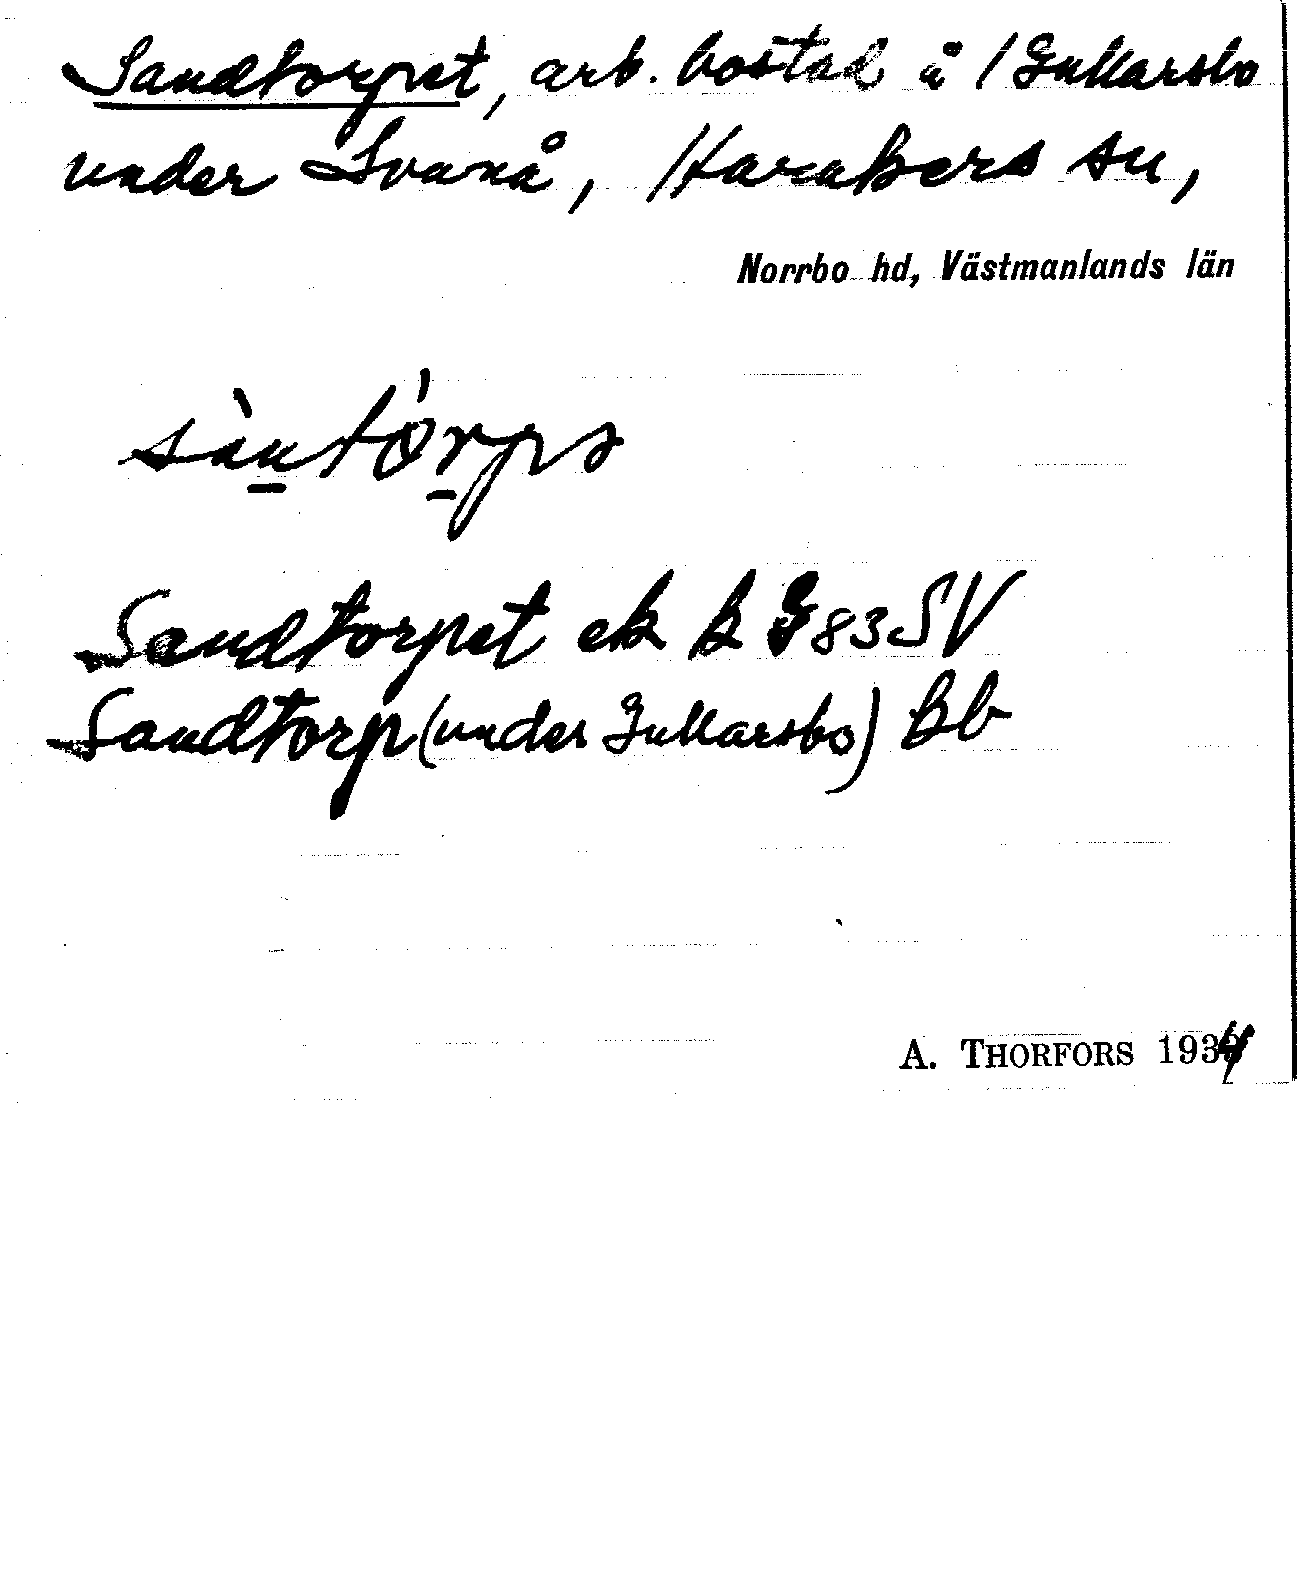 Sandtorpet, arb. bostad å / Gullarsbo
under Svanå, Haraker sn,
Norrbo hd, Västmanlands län
sàntórps
Sandtorpet ek k J 83 SV
Sandtorp (under Gullarsbo) Bb
A. THORFORS 1934